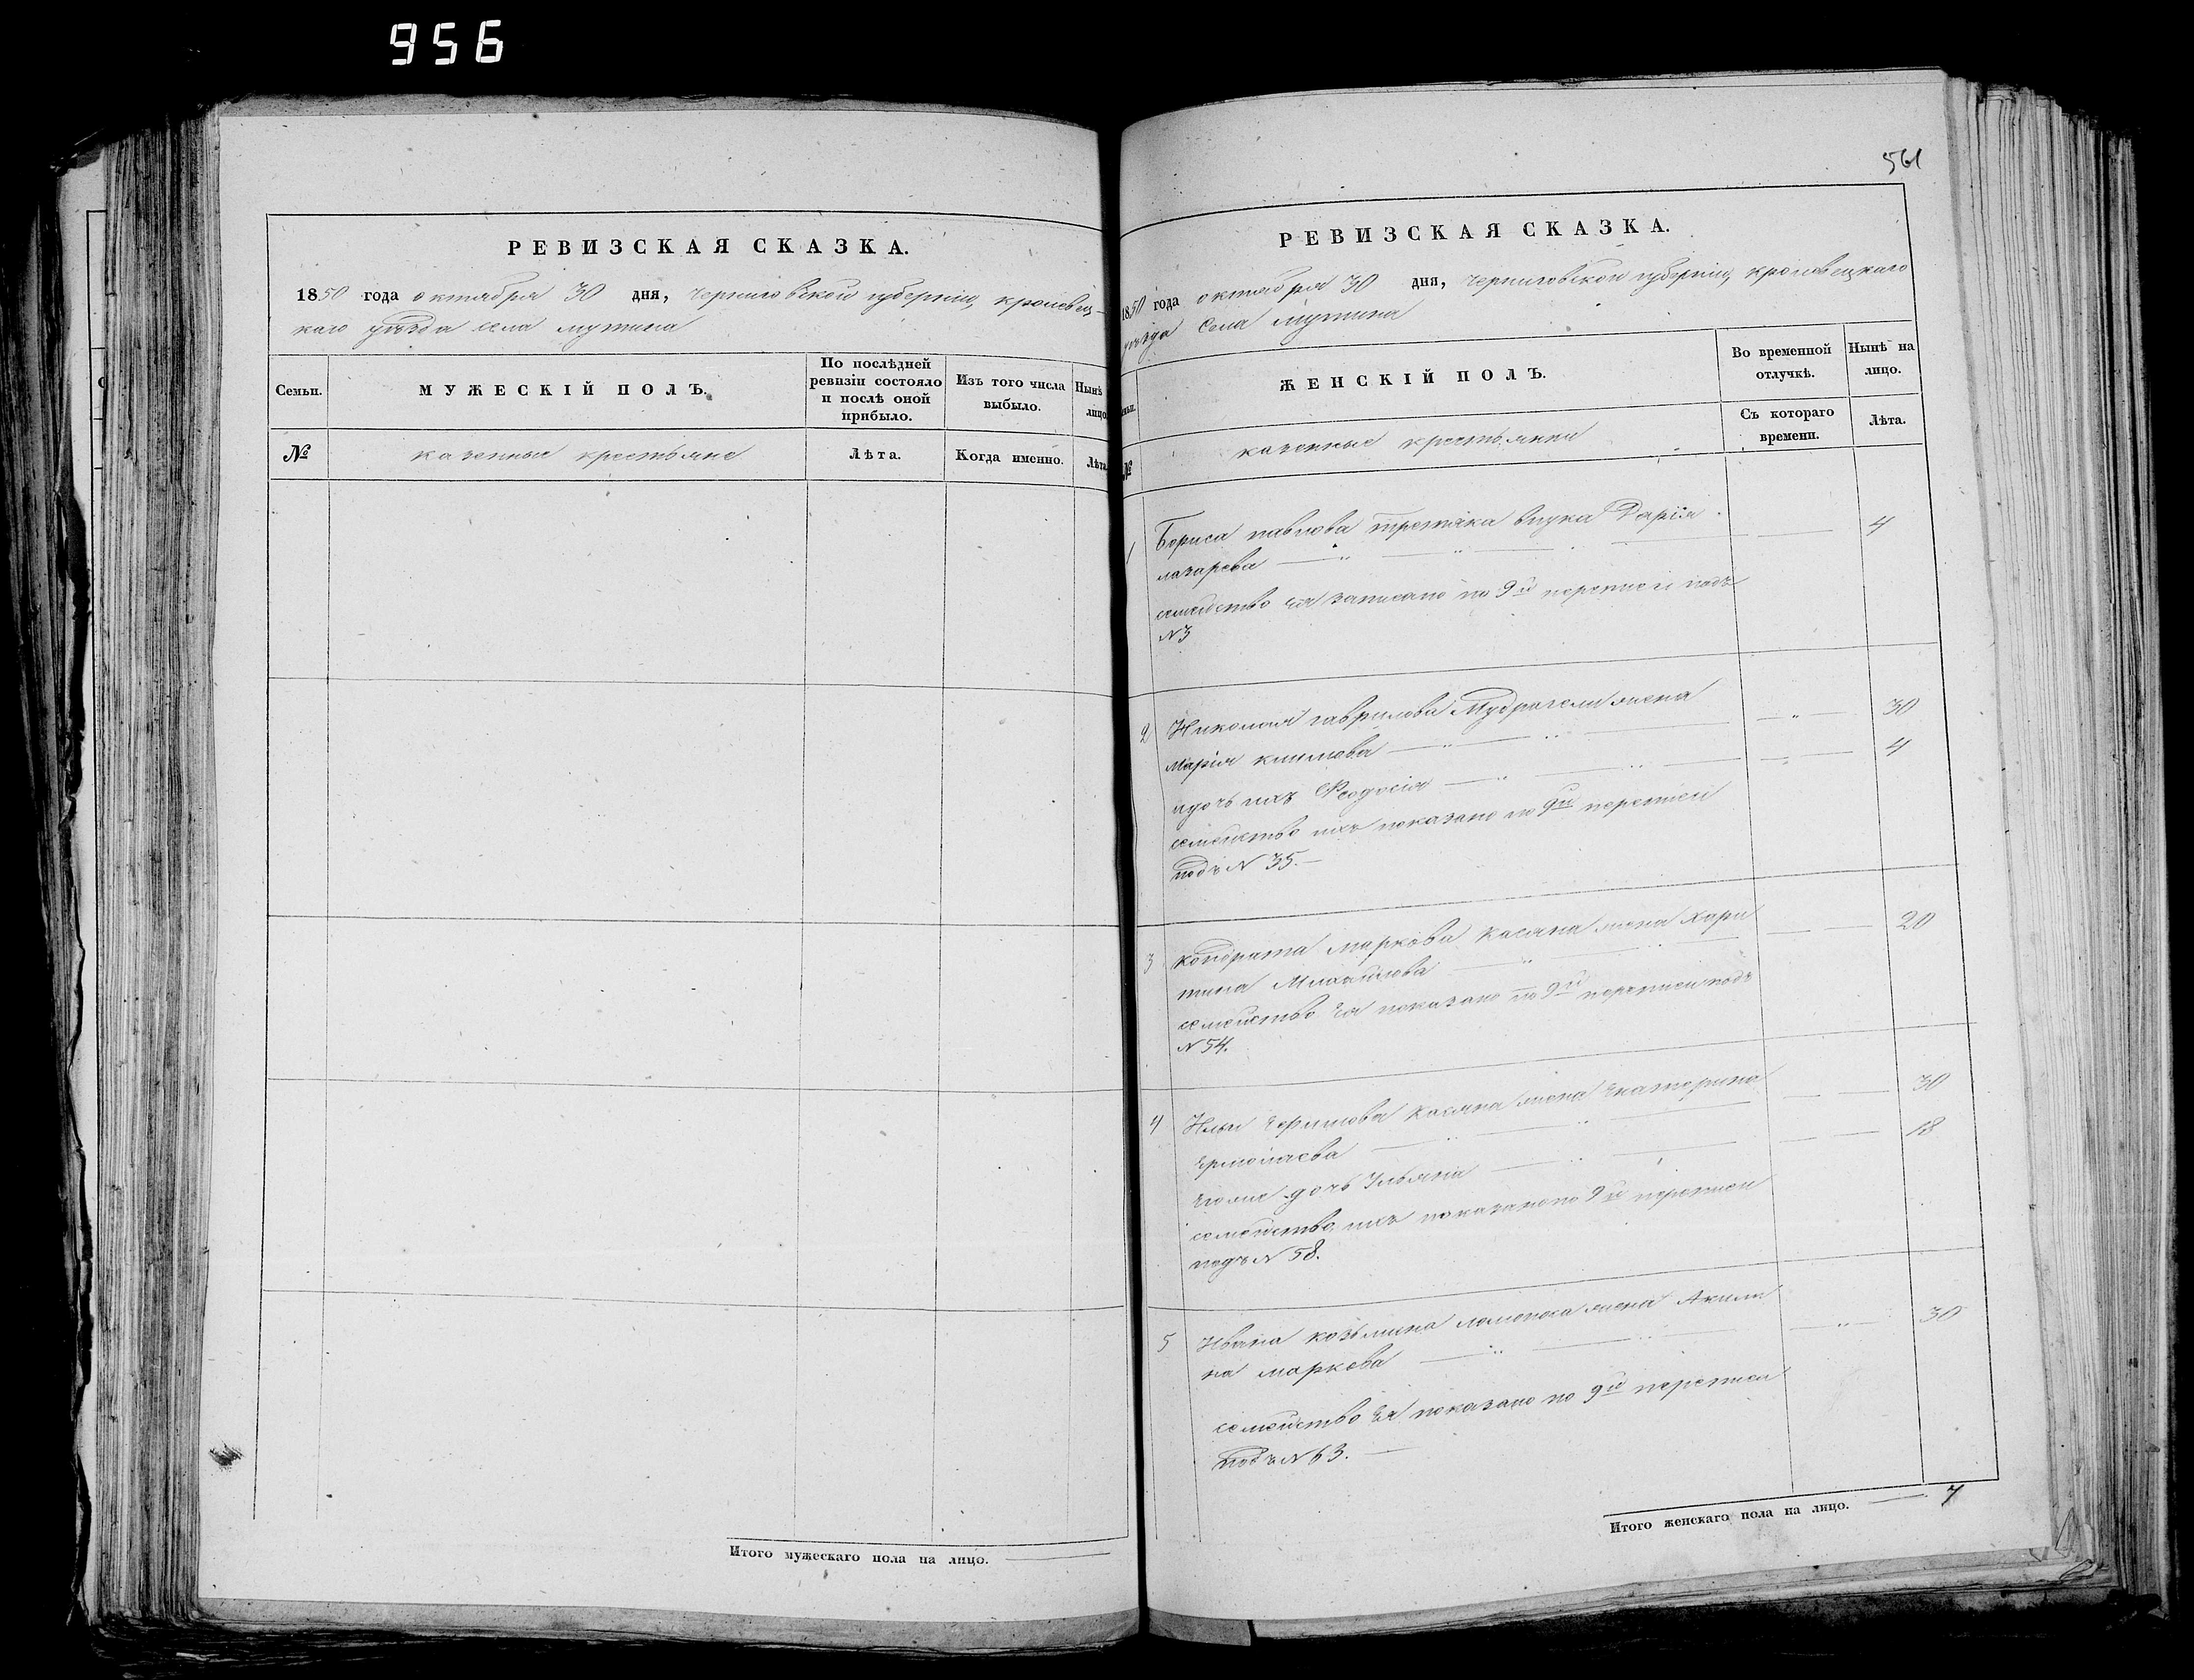 956
РЕВИЗСКАЯ СКАЗКА.
1850 года октября 30 дня, черниговской губернии, кролевец-
каго уѣзда села мутина
Семьи.
МУЖЕСКІЙ ПОЛЪ.
По послѣдней
ревизіи состояло
и послѣ оной
прибыло.
Изъ того числа
выбыло.
Нынѣ
лицо
№
казенные крестьяне
Лѣта.
Когда именно.
Лѣта
Итого мужескаго пола на лицо.
561
РЕВИЗСКАЯ СКАЗКА.
1850 года октября 30 дня, черниговской губерніи, кролевецкаго
уѣзда села мутина
ЖЕНСКІЙ ПОЛЪ.
Во временной
отлучкѣ.
Нынѣ на
лицо.
Съ котораго
времени.
Лѣта.
№
казенные крестьянки
1 Бориса павлова третяка внука Дарія
лазарева 4
семейство ея записано по 9й переписи подъ
N 3
2 Николая гаврилова жена
марія климова 30
идочь ихъ Феодосія 4
семейство ихъ показано по 9й переписи
подъ N 35.
3 кондрата маркова касяна жена хари
тина Михайлова 20
семейство Ея показано по 9й переписи подъ
N 54.
4 Ильи касяна жена Екатерина
Ермолаева 30
дочь Ульяна 18
семейство ихъ показано по 9й переписи
подъ N 58.
5 Ивана козьмина жена Акили
на маркова 30
семейство Ея показано по 9й переписи
подъ N 63.
Итого женскаго пола на лицо. 7